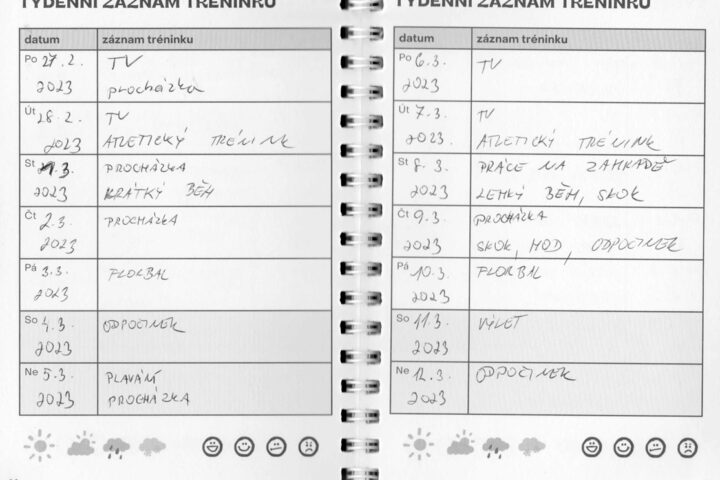 TÝDENNÍ ZÁZNAM TRÉNINKU
datum záznam tréninku
Po 27.2. TV
2023 procházka
Út 28.2. TV
2023 ATLETICKÝ TRÉNINK
St 1.3. PROCHÁZKA
2023 KRÁTKÝ BĚH
Čt 2.3. PROCHÁZKA
2023
Pá 3.3. FLORBAL
2023
So 4.3. ODPOČINEK
2023
Ne 5.3. PLAVÁNÍ
2023 PROCHÁZKA
TÝDENNÍ ZÁZNAM TRÉNINKU
datum záznam tréninku
Po 6.3. TV
2023
Út 7.3. TV
2023. ATLETICKÝ TRÉNINK
St 8.3. PRÁCE NA ZAHRADĚ
2023 LEHKÝ BĚH, SKOK
Čt 9.3. PROCHÁZKA
2023 SKOK, HOD, ODPOČINEK
Pá 10.3. FLORBAL
2023
So 11.3. VÝLET
2023
Ne 12.3. ODPOČINEK
2023